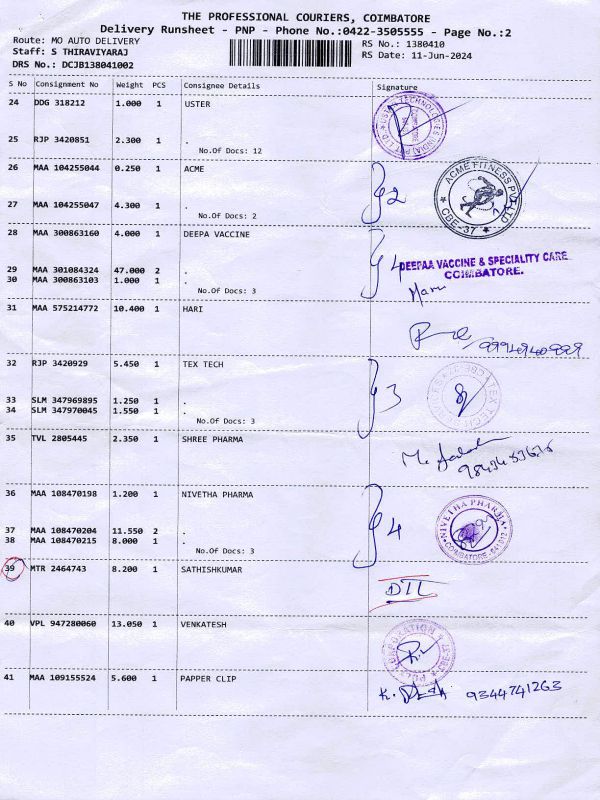 THE PROFESSIONAL COURIERS, COIMBATORE
Delivery Runsheet - PNP - Phone No.:0422-3505555 - Page No.:2
Route: MO AUTO DELIVERY
RS No.: 1380410
Staff: S THIRAVIYARAJ
RS Date: 11-Jun-2024
DRS No.: DCJB138041002
S No Consignment No Weight PCS Consignee Details Signature
24 DDG 318212 1.000 1 USTER
25 RJP 3420851 2.300 1 .
No.Of Docs: 12
26 MAA 104255044 0.250 1 ACME
2
ACME FITNESS PVT LTD
CBE-37
27 MAA 104255047 4.300 1 .
No.Of Docs: 2
28 MAA 300863160 4.000 1 DEEPA VACCINE
4
DEEPAA VACCINE & SPECIALITY CARE
COIMBATORE.
29 MAA 301084324 47.000 2 .
30 MAA 300863103 1.000 1 .
No.Of Docs: 3
31 MAA 575214772 10.400 1 HARI
32 RJP 3420929 5.450 1 TEX TECH
3
TEX TECH
33 SLM 347969895 1.250 1 .
34 SLM 347970045 1.550 1 .
No.Of Docs: 3
35 TVL 2805445 2.350 1 SHREE PHARMA
36 MAA 108470198 1.200 1 NIVETHA PHARMA
4
NIVETHA PHARMA
COIMBATORE-641012
37 MAA 108470204 11.550 2 .
38 MAA 108470215 8.000 1 .
No.Of Docs: 3
39 MTR 2464743 8.200 1 SATHISHKUMAR
DTL
40 VPL 947280060 13.050 1 VENKATESH
41 MAA 109155524 5.600 1 PAPPER CLIP
9344741263